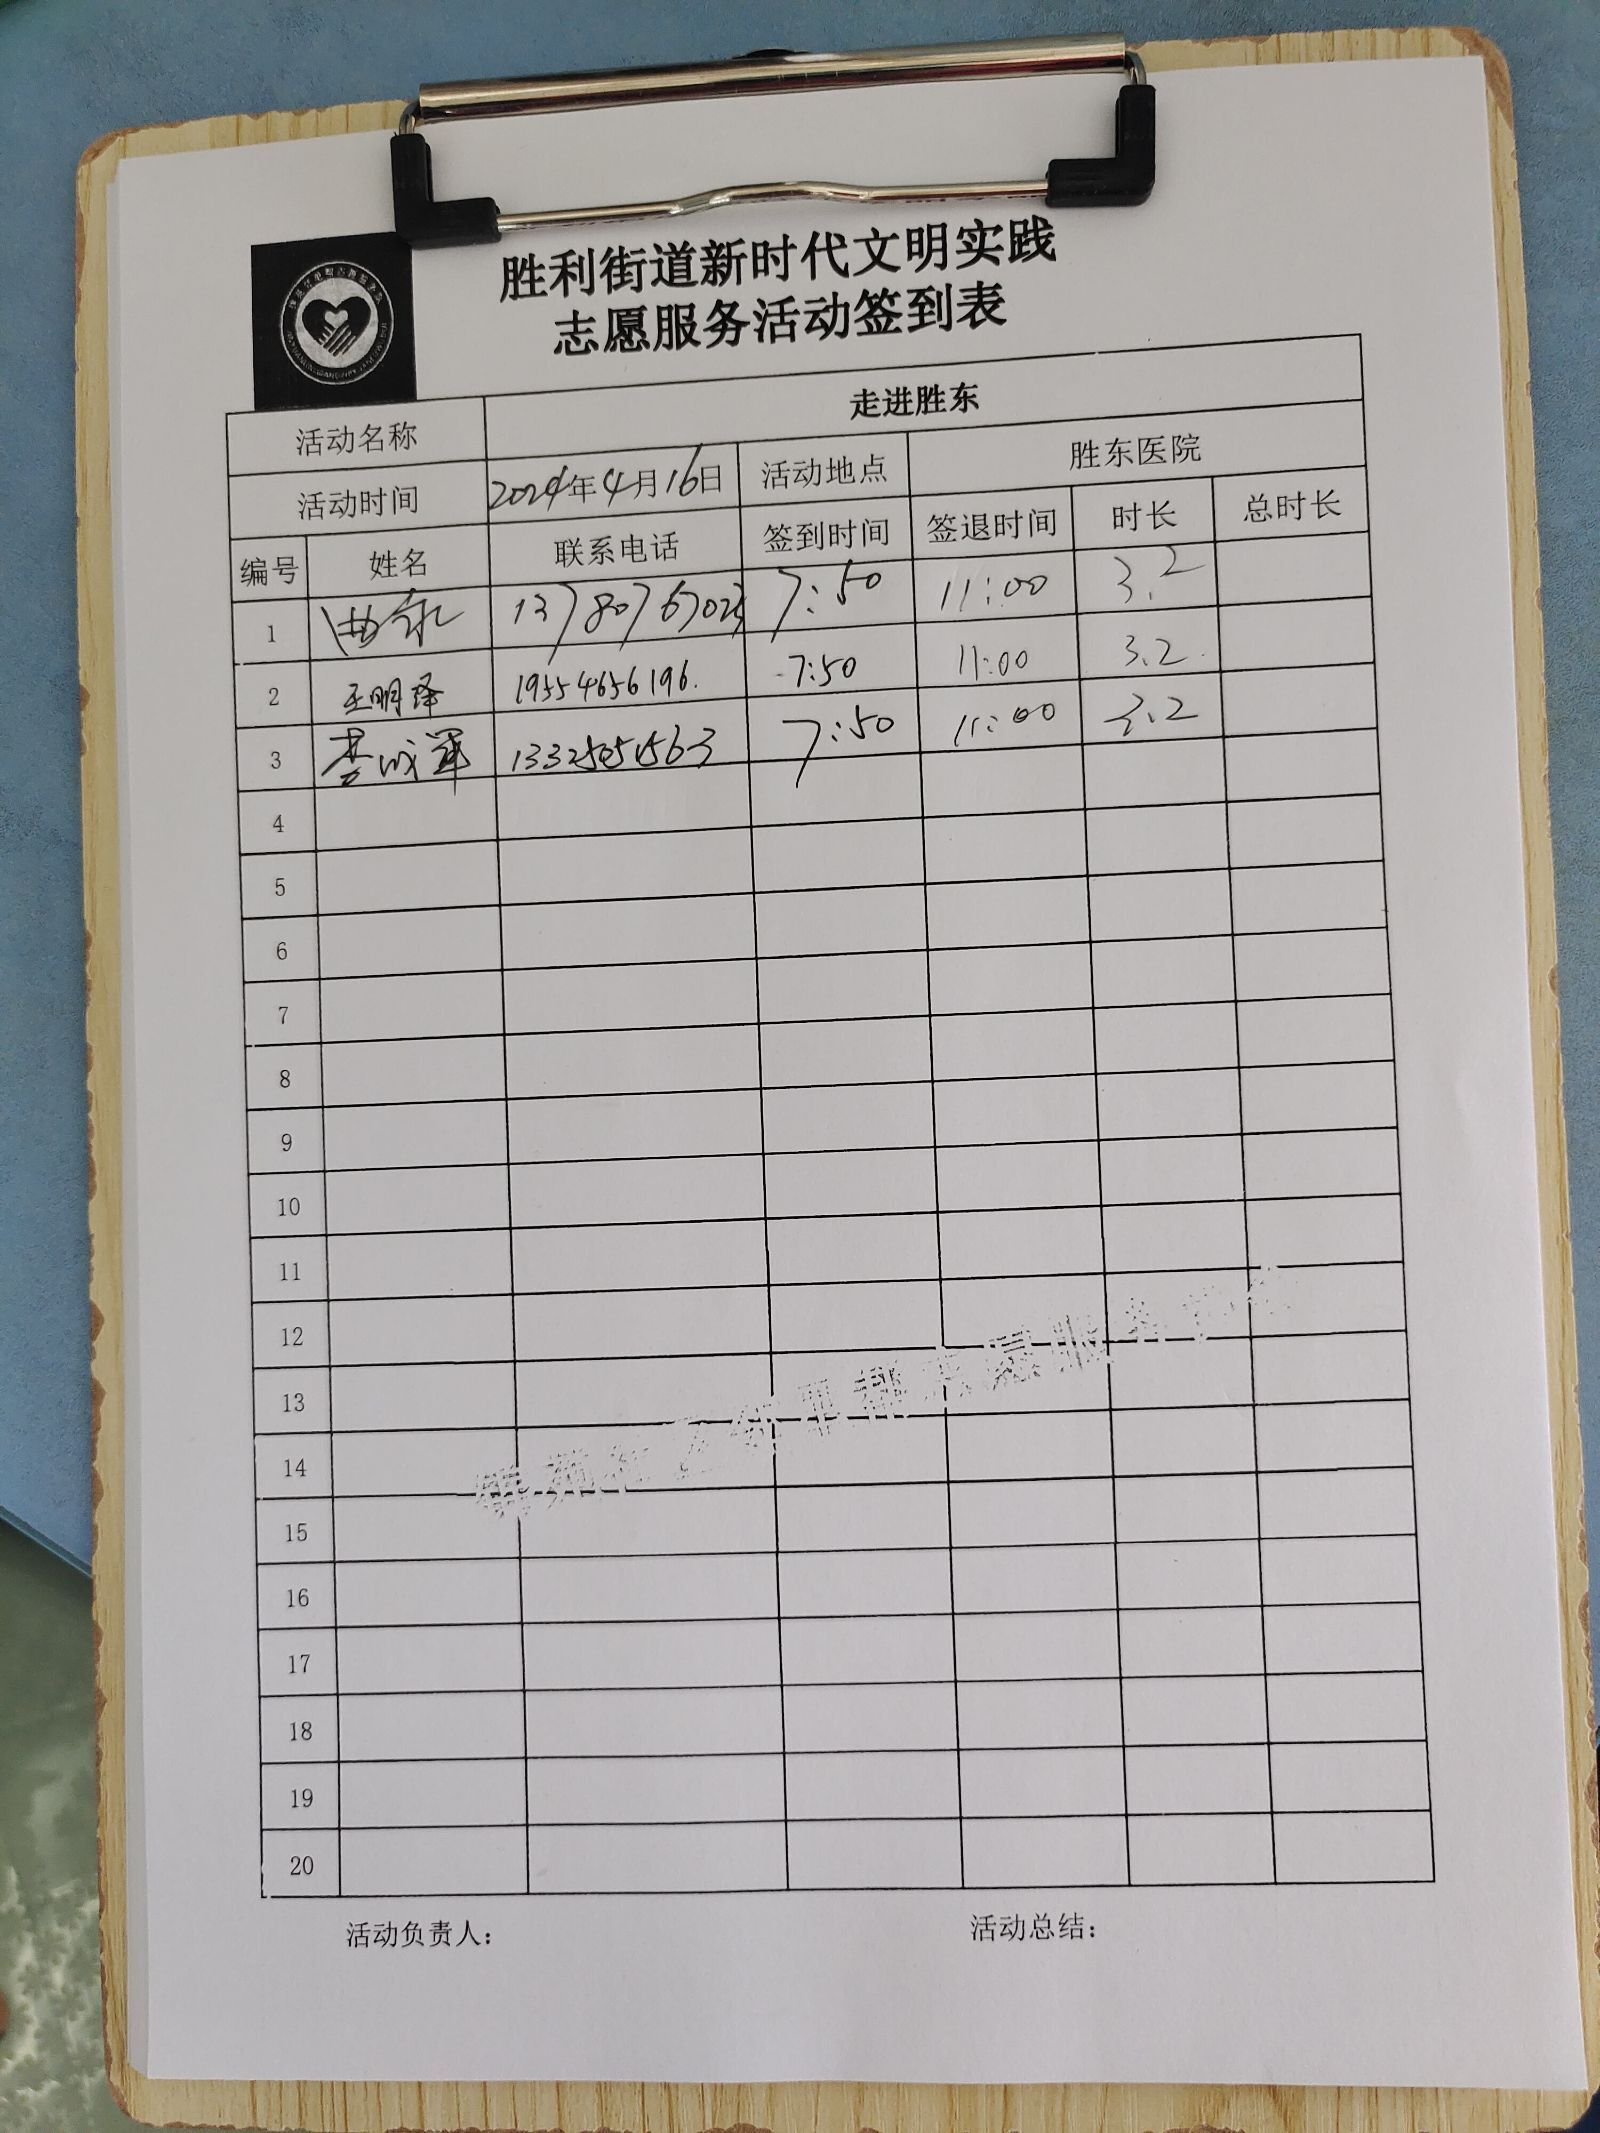 胜利街道新时代文明实践
志愿服务活动签到表
活动名称 走进胜东
活动时间 2024年4月16日 活动地点 胜东医院
编号 姓名 联系电话 签到时间 签退时间 时长 总时长
1 曲 13780767025 7:50 11:00 3.2
2 王明泽 19554656196. 7:50 11:00 3.2
3 李成军 13325051563 7:50 11:00 3.2
4
5
6
7
8
9
10
11
12
13
14
15
16
17
18
19
20
活动负责人: 活动总结: